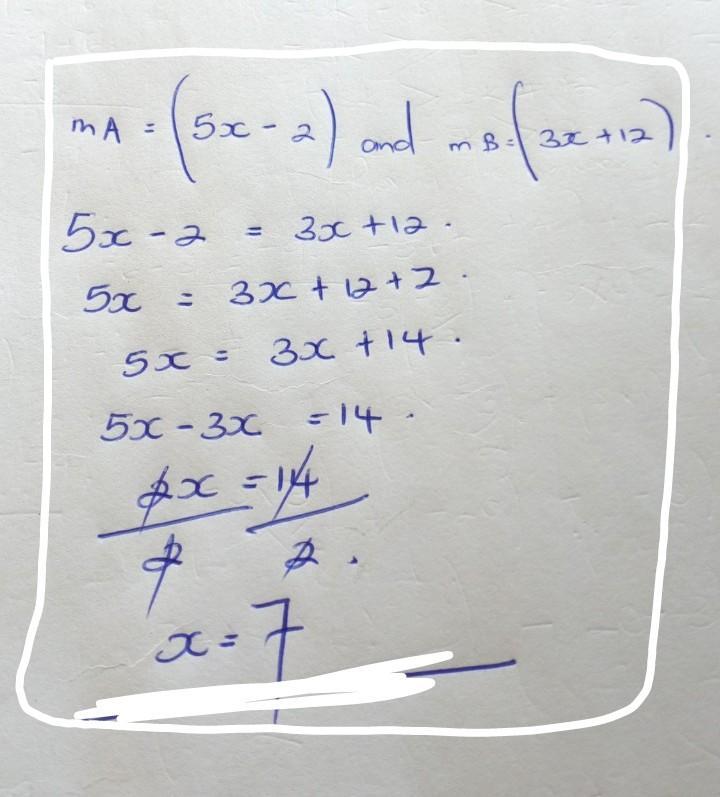 mA = (5x - 2) and mB = (3x + 12).
5x - 2 = 3x + 12.
5x = 3x + 12 + 2.
5x = 3x + 14.
5x - 3x = 14.
2x = 14
2 2.
x = 7